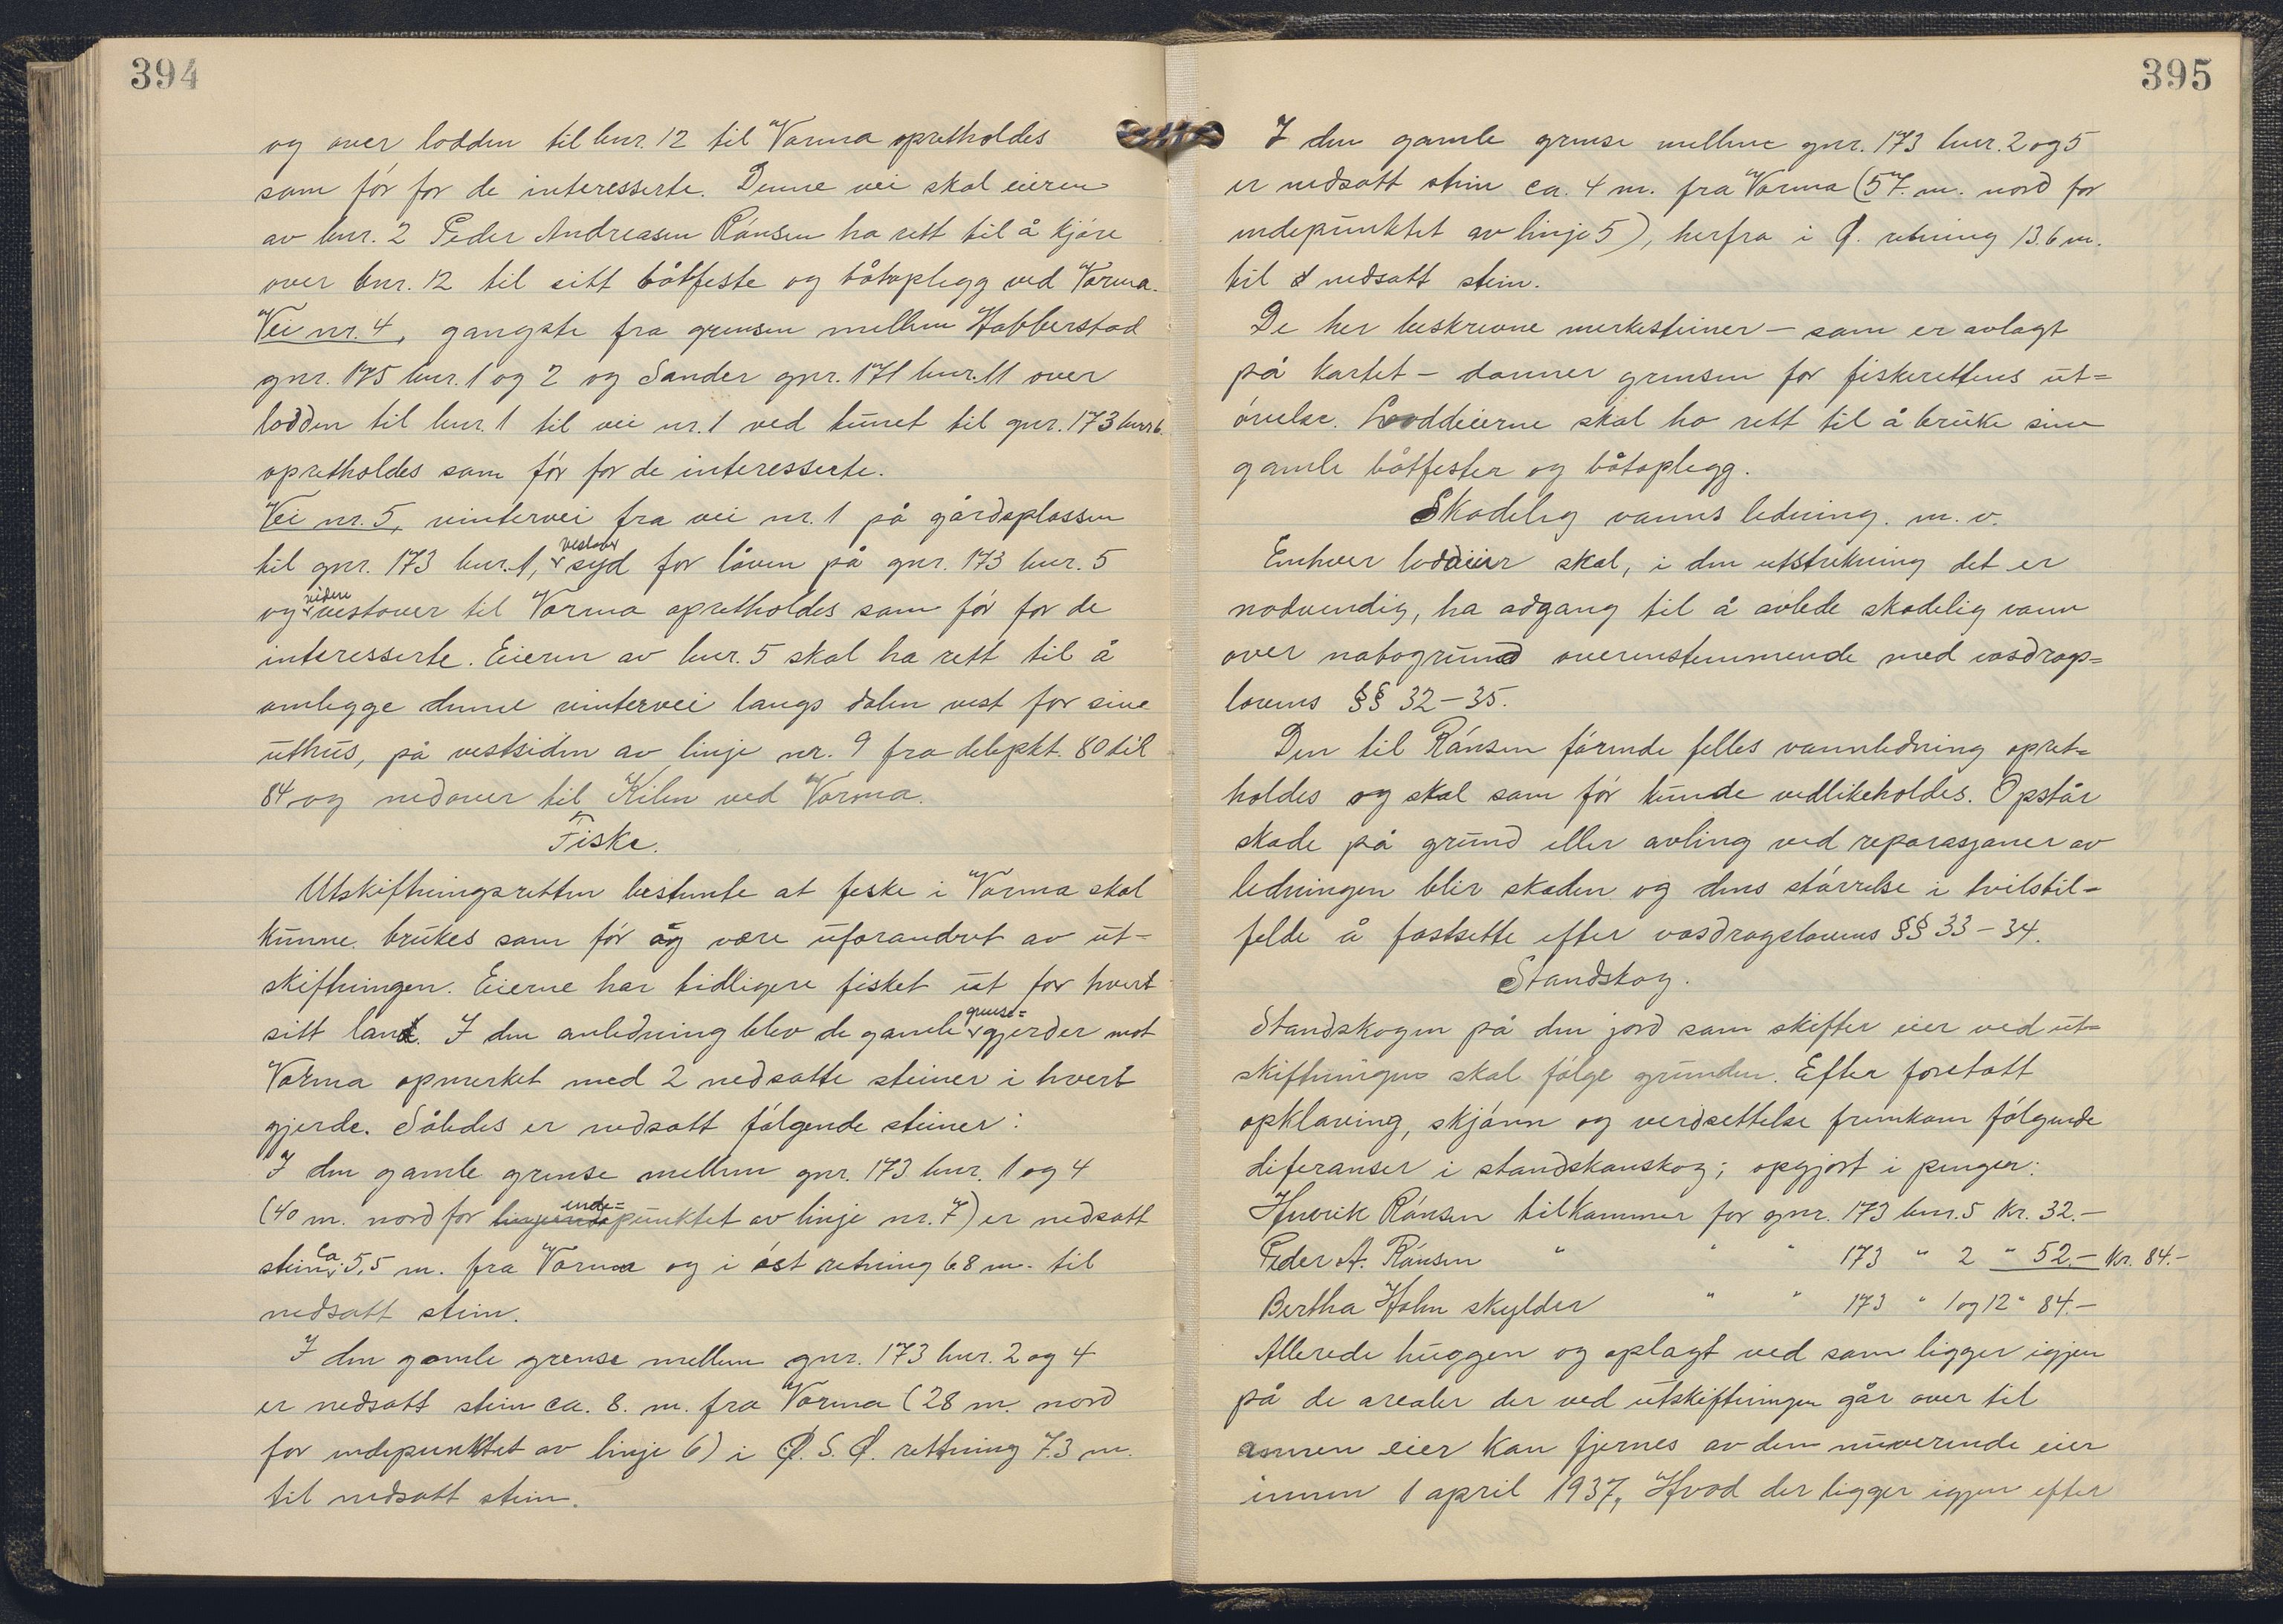 394
og over lodden til bnr. 12 til Vorma opretholdes
som før for de interesserte. Denne vei skal eieren
av bnr. 2 Peder Andreasen Rånsen ha rett til å kjøre
over bnr. 12 til sitt båtfeste og båtoplegg ved Vorma.
Vei nr. 4, gangsti fra grensen mellem Habberstad
gnr. 175 bnr. 1 og 2 og Sander gnr. 171 bnr. 11 over
lodden til bnr. 1 til vei nr. 1 ved tunet til gnr. 173 bnr 6.
opretholdes som før for de interesserte.
Vei nr. 5, vintervei fra vei nr. 1 på gårdsplassen
til gnr. 173 bnr. 1, vestover syd for låven på gnr. 173 bnr. 5
og videre vestover til Vorma opretholdes som før for de
interesserte. Eieren av bnr. 5 skal ha rett til å
omlegge denne vintervei langs dalen vest for sine
uthus, på vestsiden av linje nr. 9 fra delepkt. 80 til
84 og nedover til Kilen ved Vorma.
Fiske.
Utskiftningsretten bestemte at fiske i Vorma skal
kunne brukes som før og være uforandret av ut-
skiftningen. Eierne har tidligere fisket ut for hvert
sitt land. I den anledning blev de gamle grense=gjerder mot
Vorma opmerket med 2 nedsatte steiner i hvert
gjerde. Således er nedsatt følgende steiner:
I den gamle grense mellem gnr. 173 bnr. 1 og 4
(40 m. nord for ende=punktet av linje nr. 7) er nedsatt
stein ca 5,5 m. fra Vorma og i øst retning 68 m. til
nedsatt stein.
I den gamle grense mellem gnr. 173 bnr. 2 og 4
er nedsatt stein ca. 8. m. fra Vorma (28 m. nord
for endepunktet av linje 6) i Ø. S. Ø. rettning 73 m.
til nedsatt stein.
395
I den gamle grense mellem gnr. 173 bnr. 2 og 5
er nedsatt stein ca. 4 m. fra Vorma (57. m. nord for
endepunktet av linje 5), herfra i Ø. retning 136 m.
til nedsatt stein.
De her beskrevne merkesteiner – som er avlagt
på kartet – danner grensen for fiskerettens ut=
øvelse. Loddeierne skal ha rett til å bruke sine
gamle båtfester og båtoplegg.
Skadelig vanns ledning. m. v.
Enhver loddeier skal, i den utstrekning det er
nødvendig, ha adgang til å avlede skadelig vann
over nabogrund overenstemmende med vasdrags=
lovens §§ 32–35.
Den til Rånsen førende felles vannledning opret=
holdes og skal som før kunde vedlikeholdes. Opstår
skade på grund eller avling ved reparasjoner av
ledningen blir skaden og dens størrelse i tvilstil=
felde å fastsette efter vasdragslovens §§ 33–34.
Standskog.
Standskogen på den jord som skifter eier ved ut=
skiftningen skal følge grunden. Efter foretatt
opklaving, skjønn og verdsettelse fremkom følgende
diferanser i standskanskog; opgjort i penger:
Henrik Rånsen tilkommer for gnr. 173 bnr. 5 kr. 32.–
Peder A. Rånsen " " " 173 " 2 " 52.– kr. 84.–
Bertha Holm skylder " " 173 " 1 og 12 " 84.–
Allerede huggen og oplagt ved som ligger igjen
på de arealer der ved utskiftningen går over til
annen eier kan fjernes av den nuverende eier
innen 1 april 1937, Hvad der ligger igjen efter